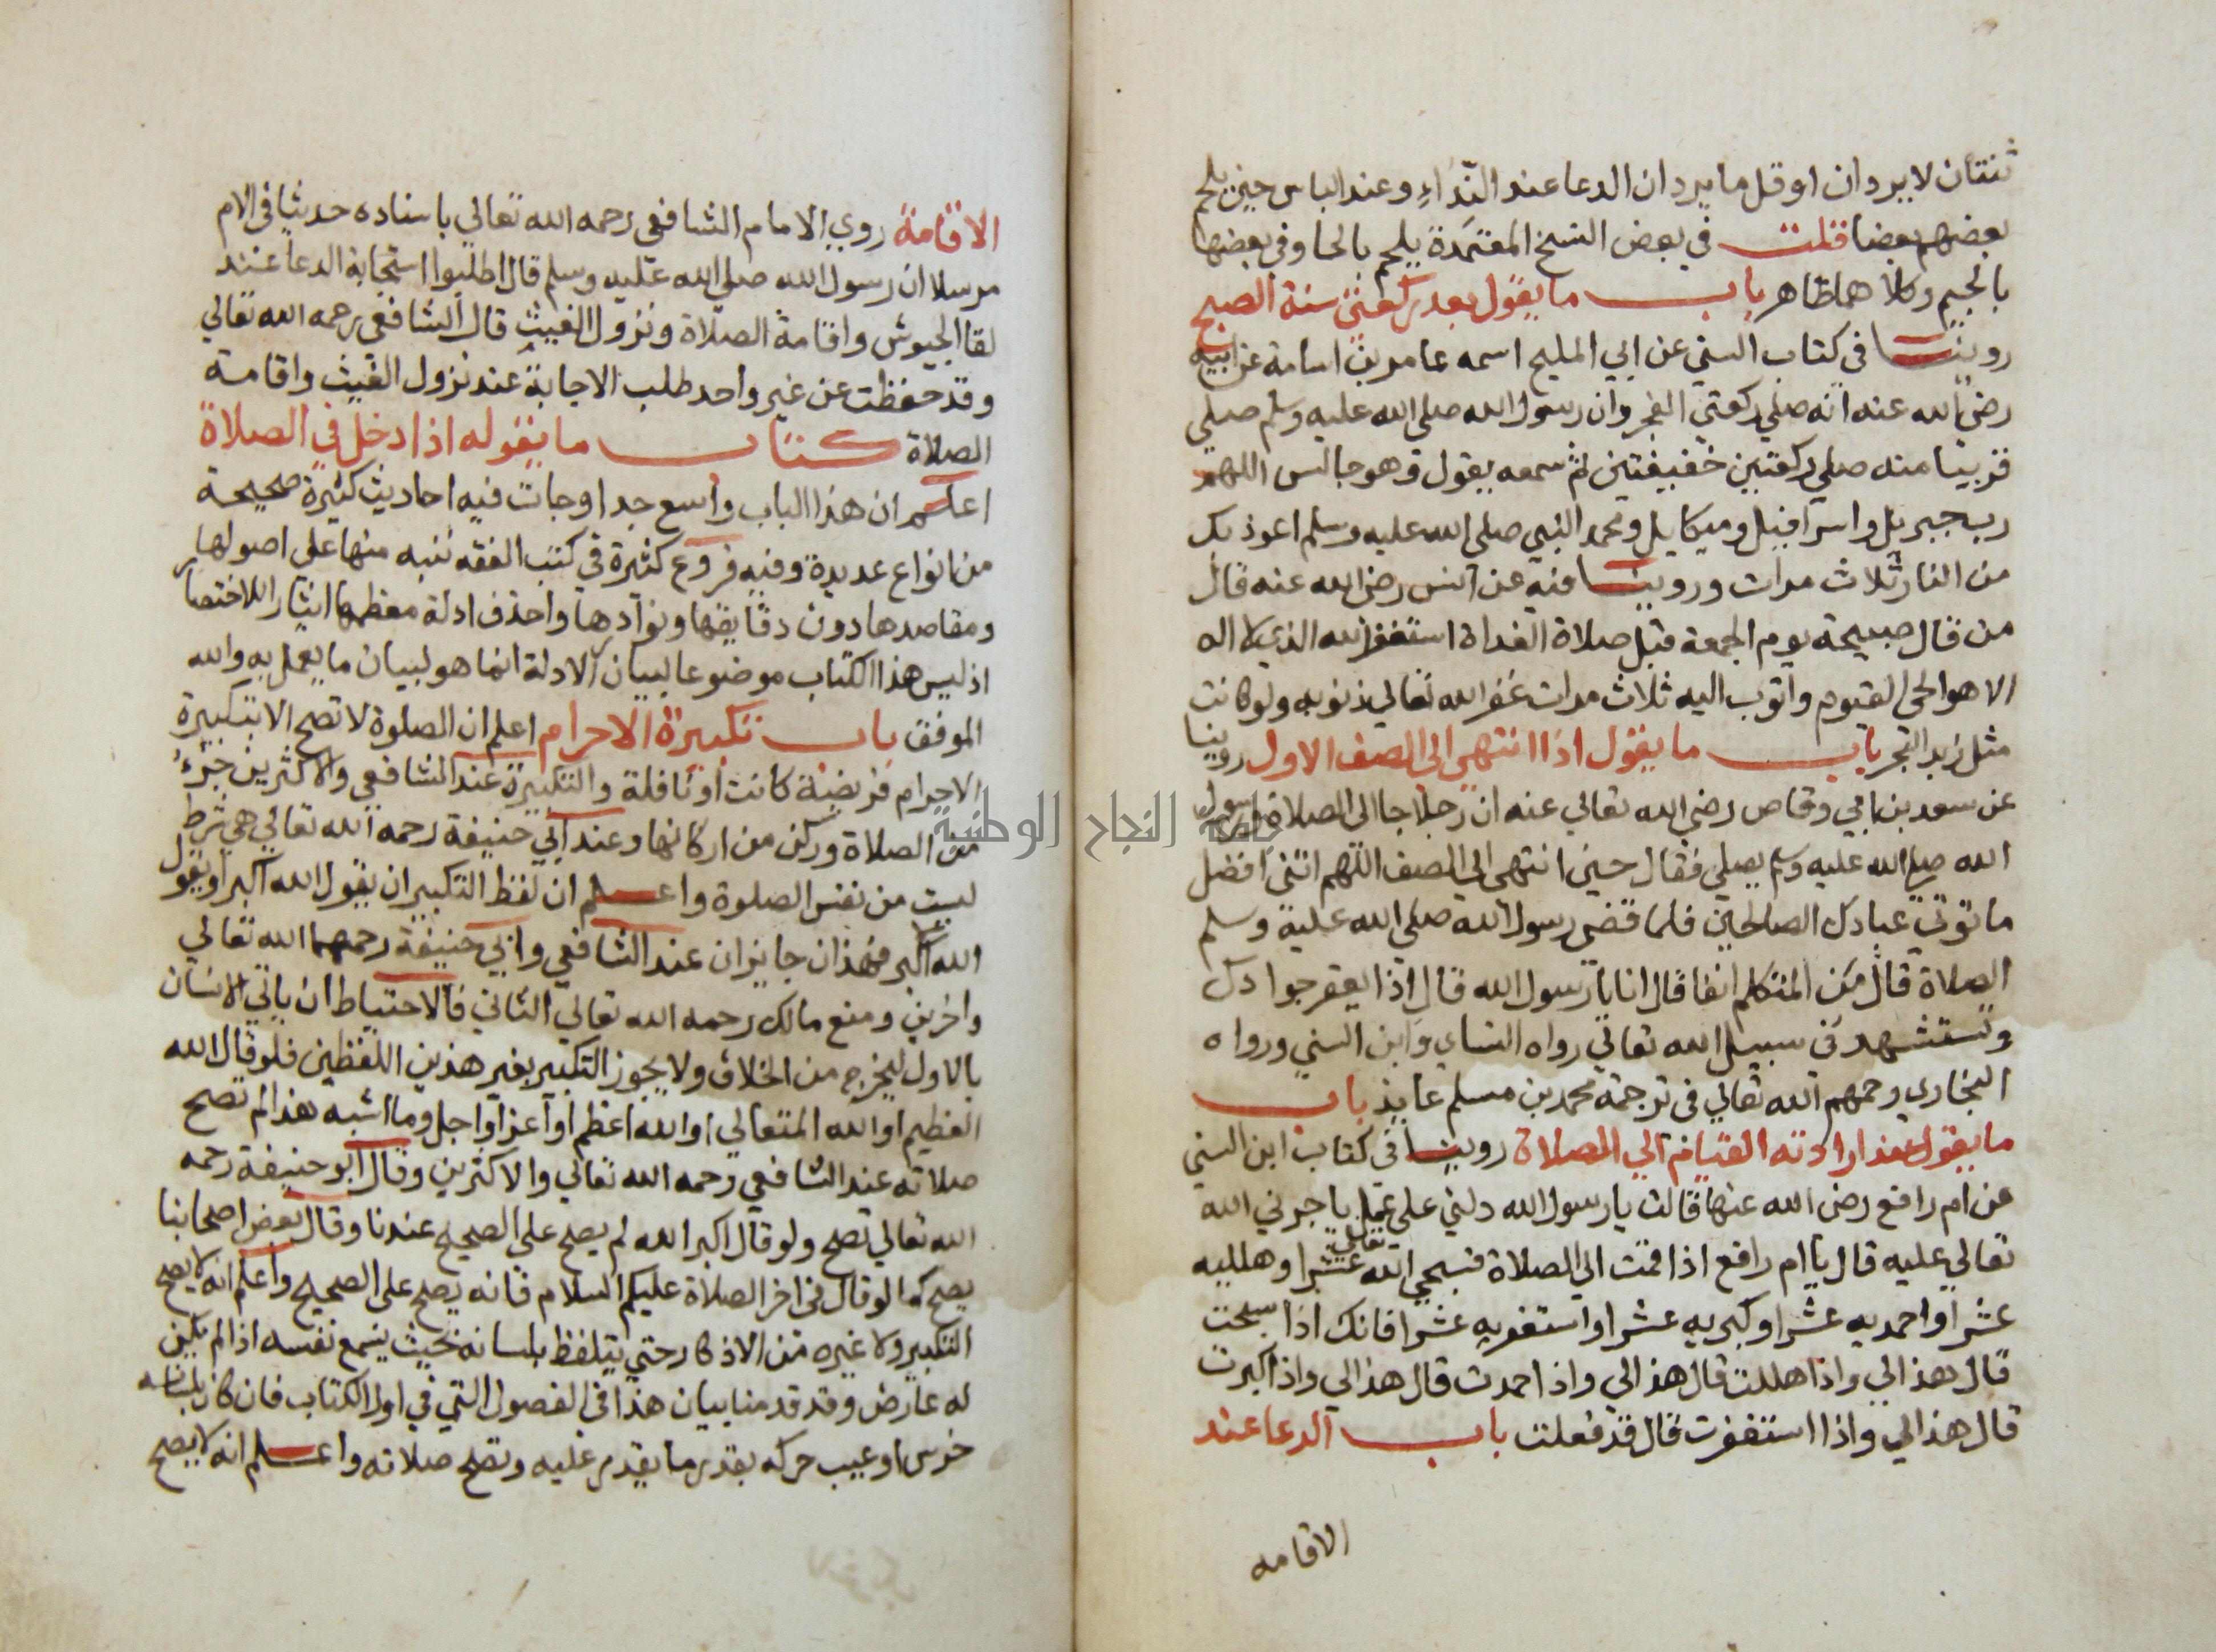 ثنتان لا يردان او قل ما يردان الدعا عند النداء وعند الباس حين يلحم
بعضهم بعضا قلت في بعض النسخ المعتمدة يلحم بالحا وفي بعضها
بالجيم وكلاهما ظاهر باب ما يقول بعد ركعتي سنة الصبح
روينا في كتاب السني عن ابي المليح اسمه عامر بن اسامة عن ابيه
رضي الله عنه انه صلي ركعتي الفجر وان رسول الله صلي الله عليه وسلم صلي
قريبا منه صلي ركعتين خفيفتين ثم سمعه يقول وهو جالس اللهم
رب جبريل واسرافيل وميكايل ومحمد النبي صلي الله عليه وسلم اعوذ بك
من النار ثلاث مرات وروينا فيه عن انس رضي الله عنه قال
من قال صبيحة يوم الجمعة قبل صلاة الغداة استغفر الله الذي لا اله
الا هو الحي القيوم واتوب اليه ثلاث مرات غفر الله تعالي ذنوبه ولو كانت
مثل زبد البحر باب ما يقول اذا انتهي الي الصف الاول روينا
عن سعد بن ابي وقاص رضي الله تعالي عنه ان رجلا جا الي الصلاة ورسول
الله صلي الله عليه وسلم يصلي فقال حين انتهي الي الصف اللهم اتني افضل
ما توتي عبادك الصالحين فلما قضي رسول الله صلي الله عليه وسلم
الصلاة قال من المتكلم انفا قال انا يا رسول الله قال اذا يعقر جوادك
وتستشهد في سبيل الله تعالي رواه النساي وابن السني ورواه
البخاري رحمهم الله تعالي في ترجمة محمد بن مسلم عايذ باب
ما يقول عند ارادته القيام الي الصلاة روينا في كتاب ابن السني
عن ام رافع رضي الله عنها قالت يا رسول الله دلني علي عمل ياجرني الله
تعالي عليه قال يا ام رافع اذا قمت الي الصلاة فسبحي الله تعالي عشرا وهلليه
عشرا واحمديه عشرا وكبريه عشرا واستغفريه عشرا فانك اذا سبحت
قال هذا لي واذا هللت قال هذا لي واذا حمدت قال هذا لي واذا كبرت
قال هذا لي واذا استغفرت قال قد فعلت باب الدعا عند
الاقامه
الاقامة روي الامام الشافعي رحمه الله تعالي باسناده حديثا في الام
مرسلا ان رسول الله صلي الله عليه وسلم قال اطلبوا استجابة الدعا عند
لقا الجيوش واقامة الصلاة ونزول الغيث قال الشافعي رحمه الله تعالي
وقد حفظت عن غير واحد طلب الاجابة عند نزول الغيث واقامة
الصلاة كتاب ما يقوله اذا دخل في الصلاة
اعلم ان هذا الباب واسع جدا وجات فيه احاديث كثيرة صحيحة
من انواع عديدة وفيه فروع كثيرة في كتب الفقه ننبه منها علي اصولها
ومقاصدها دون دقايقها ونوادرها واحذف ادلة معظمها ايثارا للاختصار
اذ ليس هذا الكتاب موضوعا لبيان الادلة انما هو لبيان ما يعمل به والله
الموفق باب تكبيرة الاحرام اعلم ان الصلوة لا تصح الا بتكبيرة
الاحرام فريضة كانت او نافلة والتكبيرة عند الشافعي والاكثرين جزء
من الصلاة وركن من اركانها وعند ابي حنيفة رحمه الله تعالي هي شرط
ليست من نفس الصلوة واعلم ان لفظ التكبير ان يقول الله اكبر او يقول
الله اكبر فهذان جايزان عند الشافعي وابي حنيفة رحمهما الله تعالي
واخرين ومنع مالك رحمه الله تعالي الثاني فالاحتياط ان ياتي الانسان
بالاول ليخرج من الخلاف ولا يجوز التكبير بغير هذين اللفظين فلو قال الله
العظيم او الله المتعالي او الله اعظم او اعز او اجل وما اشبه هذا لم تصح
صلاته عند الشافعي رحمه الله تعالي والاكثرين وقال ابو حنيفة رحمه
الله تعالي تصح ولو قال اكبر الله لم يصح علي الصحيح عندنا وقال بعض اصحابنا
يصح كما لو قال في اخر الصلاة عليكم السلام فانه يصح علي الصحيح واعلم انه لا يصح
التكبير ولا غيره من الاذكار حتي يتلفظ بلسانه بحيث يسمع نفسه اذا لم يكن
له عارض وقد قدمنا بيان هذا في الفصول التي في اول الكتاب فان كان بلسانه
خرس او عيب حركه بقدر ما يقدر عليه وتصح صلاته واعلم انه لا يصح
جامعة النجاح الوطنية